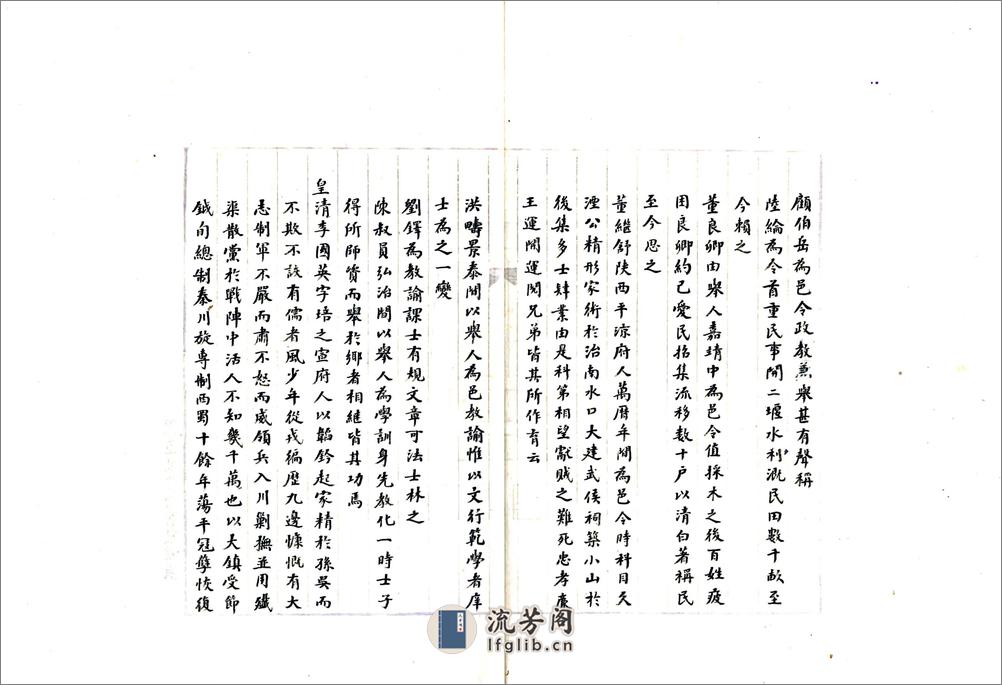 顧伯岳為邑令政教兼舉甚有聲稱
陸綸為令首重民事開二堰水利溉民田數千畝至
今賴之
董良卿由舉人嘉靖中為邑令值採木之後百姓疲
困良卿約己愛民招集流移數十戶以清白著稱民
至今思之
董繼舒陝西平涼府人萬曆年間為邑令時科目久
湮公精形家術於治南水口大建武侯祠築小山於
後集多士肄業由是科第相望獻賊之難死忠孝廉
王運開運閎兄弟皆其所作育云
洪疇景泰間以舉人為邑教諭惟以文行範學者庠
士為之一變
劉鐸為教諭課士有規文章可法士林之
陳叔員弘治間以舉人為學訓身先教化一時士子
得所師資而舉於鄉者相繼皆其功焉
皇清李國英字培之宣府人以韜鈐起家精於孫吳而
不欺不詖有儒者風少年從戎徧歷九邊慷慨有大
志制軍不嚴而肅不怒而威領兵入川剿撫並用殲
渠散黨於戰陣中活人不知幾千萬也以大鎮受節
鉞向總制秦川旋專制西蜀十餘年蕩平寇孽恢復
流芳阁
lfglib.cn